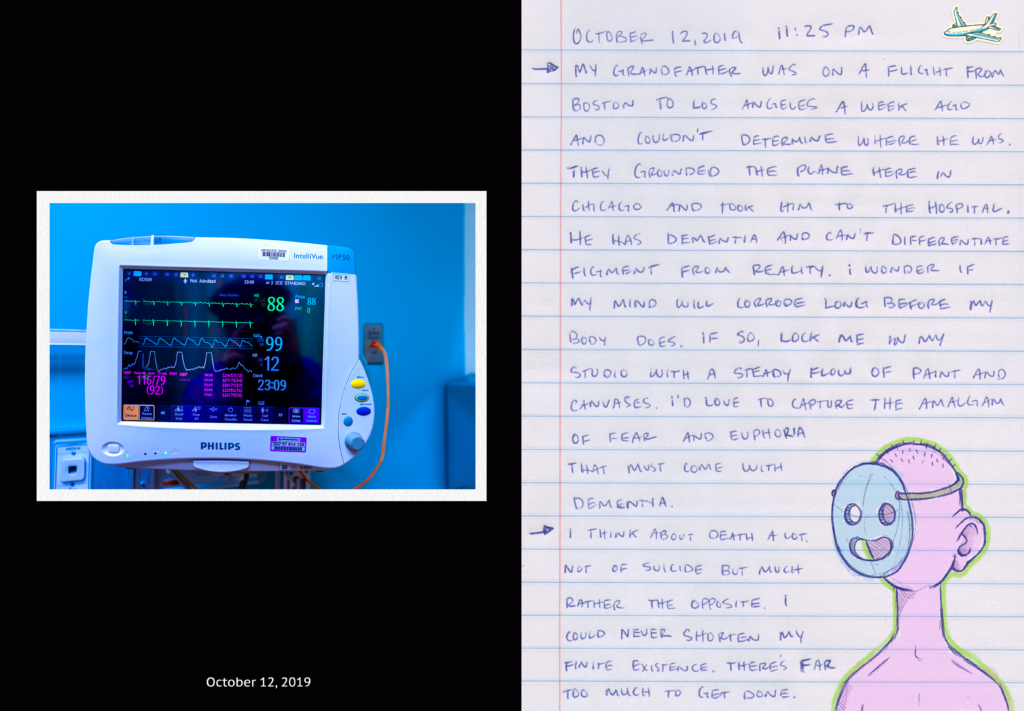 IntelliVue
MP50
Not Admitted
23:09
88
88
0
99
12
23:09
116/79
(92)
PHILIPS
October 12, 2019
OCTOBER 12, 2019 11:25 PM
MY GRANDFATHER WAS ON A FLIGHT FROM
BOSTON TO LOS ANGELES A WEEK AGO
AND COULDN'T DETERMINE WHERE HE WAS.
THEY GROUNDED THE PLANE HERE IN
CHICAGO AND TOOK HIM TO THE HOSPITAL.
HE HAS DEMENTIA AND CAN'T DIFFERENTIATE
FIGMENT FROM REALITY. I WONDER IF
MY MIND WILL CORRODE LONG BEFORE MY
BODY DOES. IF SO, LOCK ME IN MY
STUDIO WITH A STEADY FLOW OF PAINT AND
CANVASES. I'D LOVE TO CAPTURE THE AMALGAM
OF FEAR AND EUPHORIA
THAT MUST COME WITH
DEMENTIA.
I THINK ABOUT DEATH A LOT.
NOT OF SUICIDE BUT MUCH
RATHER THE OPPOSITE. I
COULD NEVER SHORTEN MY
FINITE EXISTENCE. THERE'S FAR
TOO MUCH TO GET DONE.